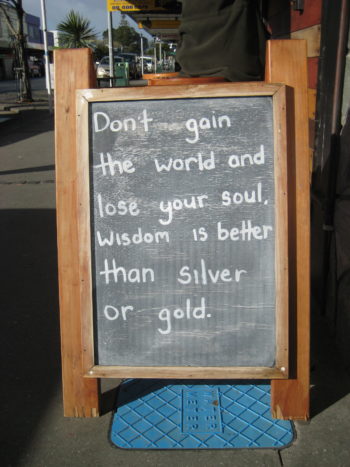 Don't gain
the world and
lose your soul,
Wisdom is better
than silver
or gold.
WATER
METER